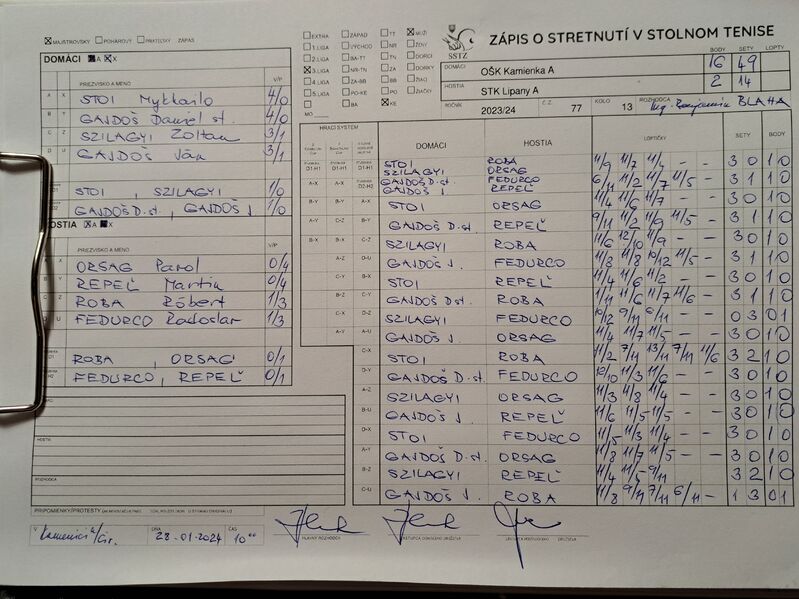 ☒ MAJSTROVSKÝ ☐ POHÁROVÝ ☐ PRIATEĽSKÝ ZÁPAS
DOMÁCI ☒ A ☒ X
PRIEZVISKO A MENO V/P
A X STOI Mykhailo 4/0
B Y GAJDOŠ Daniel st. 4/0
C Z SZILAGYI Zoltan 3/1
D U GAJDOŠ Ján 3/1
STOI , SZILAGYI 1/0
GAJDOŠ D. st. , GAJDOŠ J. 1/0
HOSTIA A X
PRIEZVISKO A MENO V/P
A X ORSAG Pavol 0/4
B Y REPEĽ Martin 0/4
C Z ROBA Róbert 1/3
D U FEDURCO Radoslav 1/3
ROBA , ORSAG 0/1
FEDURCO , REPEĽ 0/1
HOSTIA
ROZHODCA
PRIPOMIENKY/PROTESTY
V Kamenici n/Cir. DŇA 28.01.2024 ČAS 10⁰⁰
HLAVNÝ ROZHODCA
EXTRA ZÁPAD TT MUŽI
1.LIGA VÝCHOD NR ŽENY
2.LIGA BA-TT TN DORCI
3.LIGA NR-TN ZA DORKY
4.LIGA ZA-BB BB ŽIACI
5.LIGA PO-KE PO ŽIAČKY
BA KE
MO
SSTZ
ZÁPIS O STRETNUTÍ V STOLNOM TENISE
BODY SETY LOPTY
DOMÁCI OŠK Kamienka A 16 49
HOSTIA STK Lipany A 2 14
ROČNÍK 2023/24 Č.Z. 77 KOLO 13 ROZHODCA Ing. Benjamin BLAHA
HRACÍ SYSTÉM DOMÁCI HOSTIA LOPTIČKY SETY BODY
STOI SZILAGYI ROBA ORSAG 11/9 11/7 11/5 - - 3 0 1 0
GAJDOŠ D. st. GAJDOŠ FEDURCO REPEĽ 6/11 11/2 11/7 11/5 - 3 1 1 0
STOI ORSAG 11/4 11/6 11/7 - - 3 0 1 0
GAJDOŠ D. st. REPEĽ 9/11 11/2 11/9 11/5 - 3 1 1 0
SZILAGYI ROBA 11/6 12/10 11/9 - - 3 0 1 0
GAJDOŠ J. FEDURCO 11/3 11/8 10/12 11/5 - 3 1 1 0
STOI REPEĽ 11/4 11/6 11/2 - - 3 0 1 0
GAJDOŠ D st. ROBA 1/11 11/6 11/7 11/6 - 3 1 1 0
SZILAGYI FEDURCO 10/12 9/11 6/11 - - 0 3 0 1
GAJDOŠ J. ORSAG 11/4 11/7 11/5 - - 3 0 1 0
STOI ROBA 11/2 7/11 13/11 7/11 11/6 3 2 1 0
GAJDOŠ D. st. FEDURCO 12/10 11/3 11/6 - - 3 0 1 0
SZILAGYI ORSAG 11/3 11/8 11/4 - - 3 0 1 0
GAJDOŠ J. REPEĽ 11/6 11/5 11/5 - - 3 0 1 0
STOI FEDURCO 11/5 11/3 11/4 - - 3 0 1 0
GAJDOŠ D. st. ORSAG 11/8 11/7 11/5 - - 3 0 1 0
SZILAGYI REPEĽ 11/4 11/5 9/11 3 2 1 0
GAJDOŠ J. ROBA 11/8 9/11 7/11 6/11 - 1 3 0 1